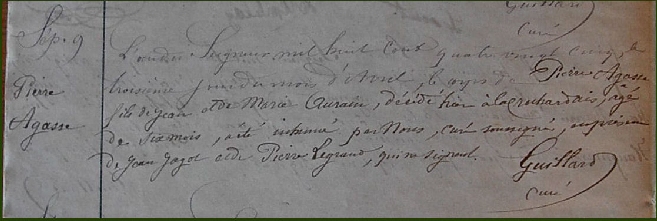 Guillard
Curé
Sép. 9
Pierre
Agasse
L'an du Seigneur mil huit cent quatre vingt cinq, le
troisième jour du mois d'Avril, le corps de Pierre Agasse
fils de Jean et de Marie Aurain, décédé hier à la , âgé
de six mois, a été inhumé par Nous, curé soussigné, en présence
de Jean Jagot et de Pierre Legrand, qui ne signent.
Guillard
curé